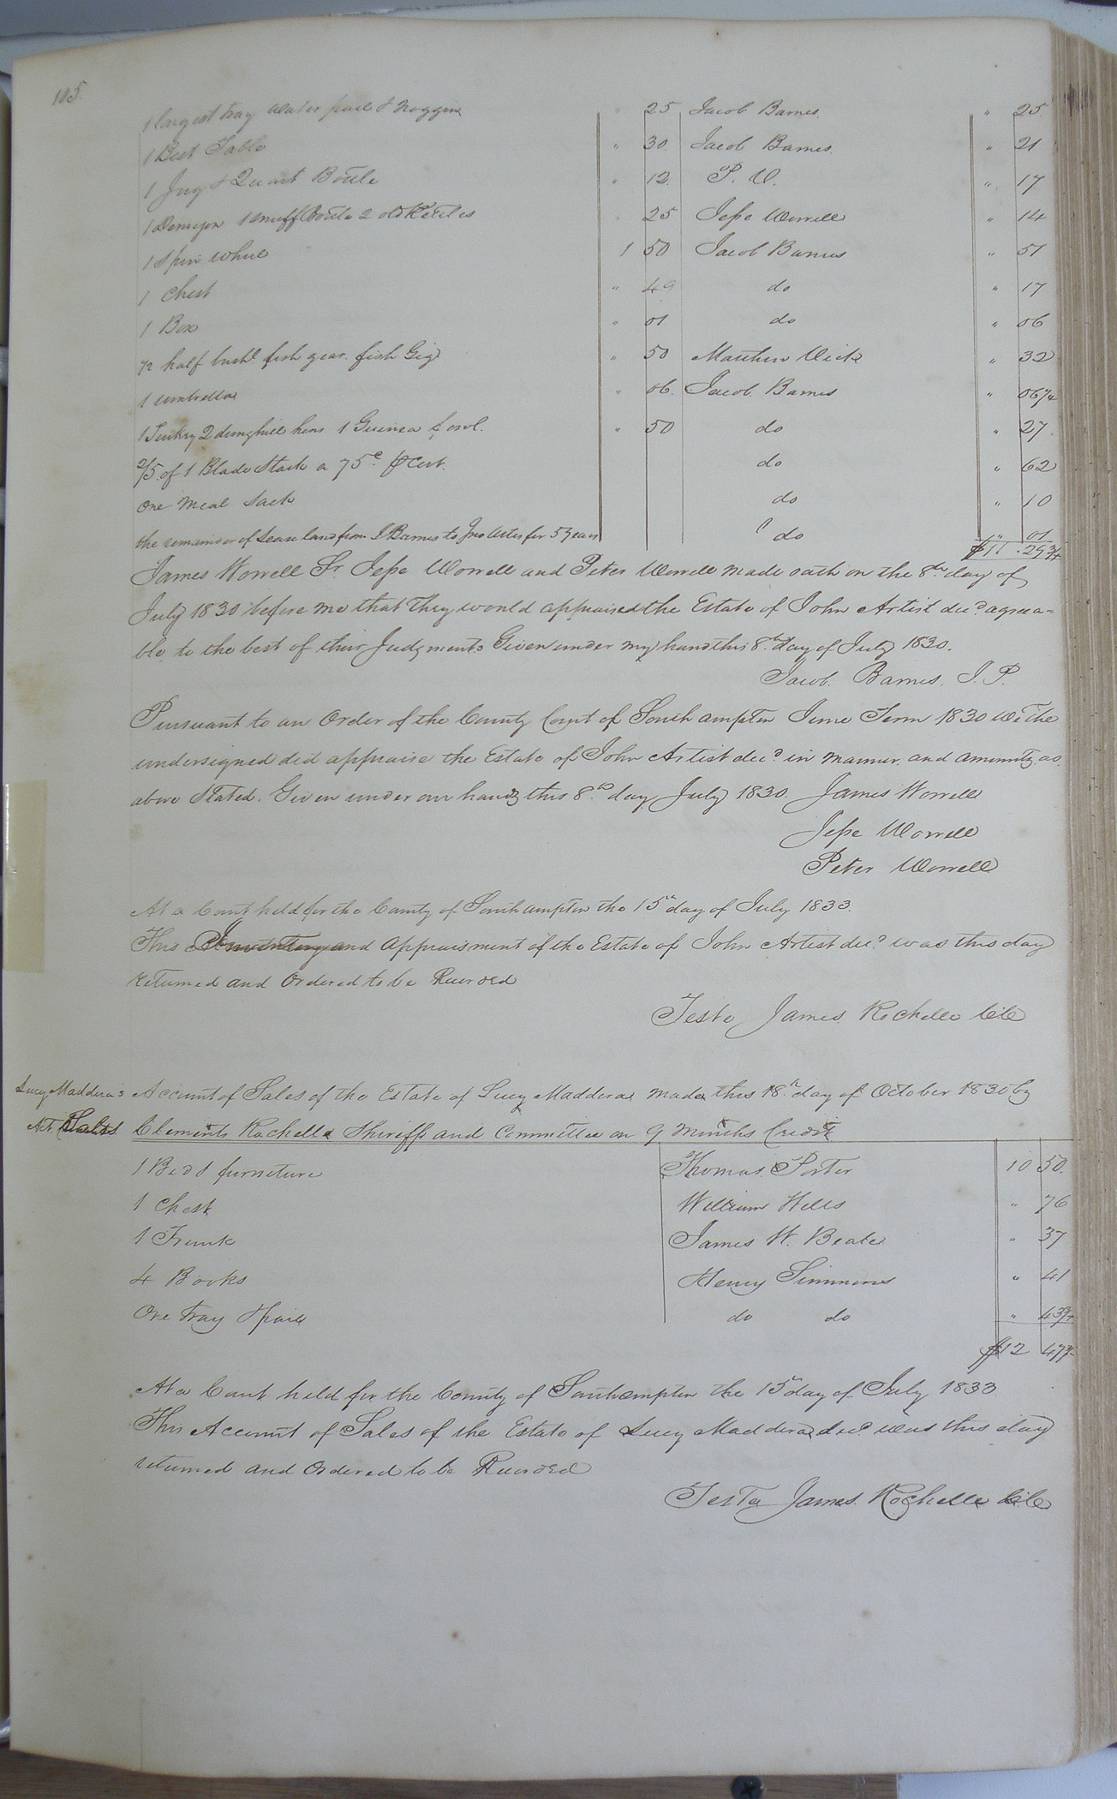 105
1 largest tray water pail & Noggin " 25 Jacob Barnes " 25
1 Best Table " 30 Jacob Barnes " 21
1 Jug & Quart Bottle " 12 P. W. " 17
1 Demijon 1 snuff Bottle 2 old Kettles " 25 Jesse Worrell " 14
1 Spin wheel 1 50 Jacob Barnes " 51
1 Chest " 49 do " 17
1 Box " 01 do " 06
half bushl fish gear. fish Gig " 50 Matthew Wick " 32
1 umbrella " 06 Jacob Barnes " 06¼
1 Turkey 2 dunghill hens 1 Guinea fowl. " 50 do " 27
2/5 of 1 Blade Stack a 75c pr Cwt. do " 62
One Meal Sack do " 10
the remainder of Lease land from J Barnes to Jno Artis for 5 years do " 01
$11.29¾
James Worrell Sr Jesse Worrell and Peter Worrell made oath on the 8th day of
July 1830 before me that they would appraised the Estate of John Artist decd agreea-
ble to the best of their Judgments Given under my hand this 8th day of July 1830.
Jacob Barnes. J. P.
Pursuant to an Order of the County Court of Southampton June Term 1830 We the
undersigned did appraise the Estate of John Artist decd in manner and amounts as
above Stated. Given under our hands this 8th day July 1830. James Worrell
Jesse Worrell
Peter Worrell
At a Court held for the County of Southampton the 15th day of July 1833.
This Inventory and Appraisment of the Estate of John Artist decd was this day
returned and Ordered to be Recorded
Teste James Rochelle Clk
Lucy Maddera's Account of Sales of the Estate of Lucy Maddera made this 18th day of October 1830 by
Act Sales Clements Rochelle Sheriff and Committee on 9 Months Credit
1 Bed & furneture Thomas Porter 10 50
1 Chest William Hills " 76
1 Trunk James W. Beale " 37
4 Books Henry Simmons " 41
One tray & pail do do " 43¾
$12 47¾
At a Court held for the County of Southampton the 15th day of July 1833
This Account of Sales of the Estate of Lucy Maddera decd was this day
returned and Ordered to be Recorded
Teste James Rochelle Clk